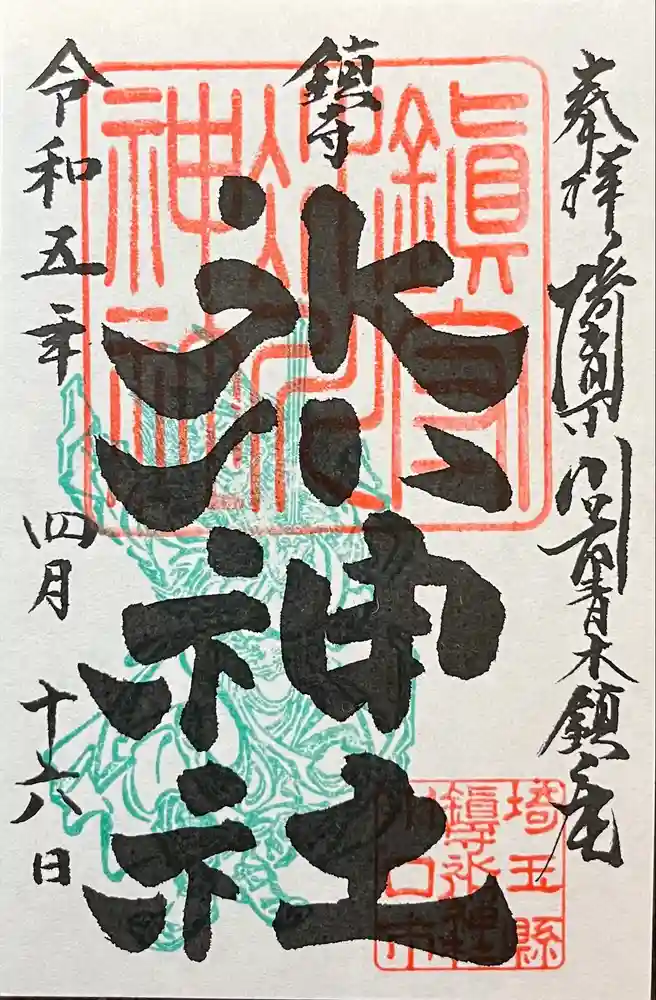 奉拝 埼玉県川口市青木鎮座
鎮守
氷川神社
令和五年 四月 十六日
鎮守
氷川
神社
埼玉縣
鎮守氷川神社
川口市